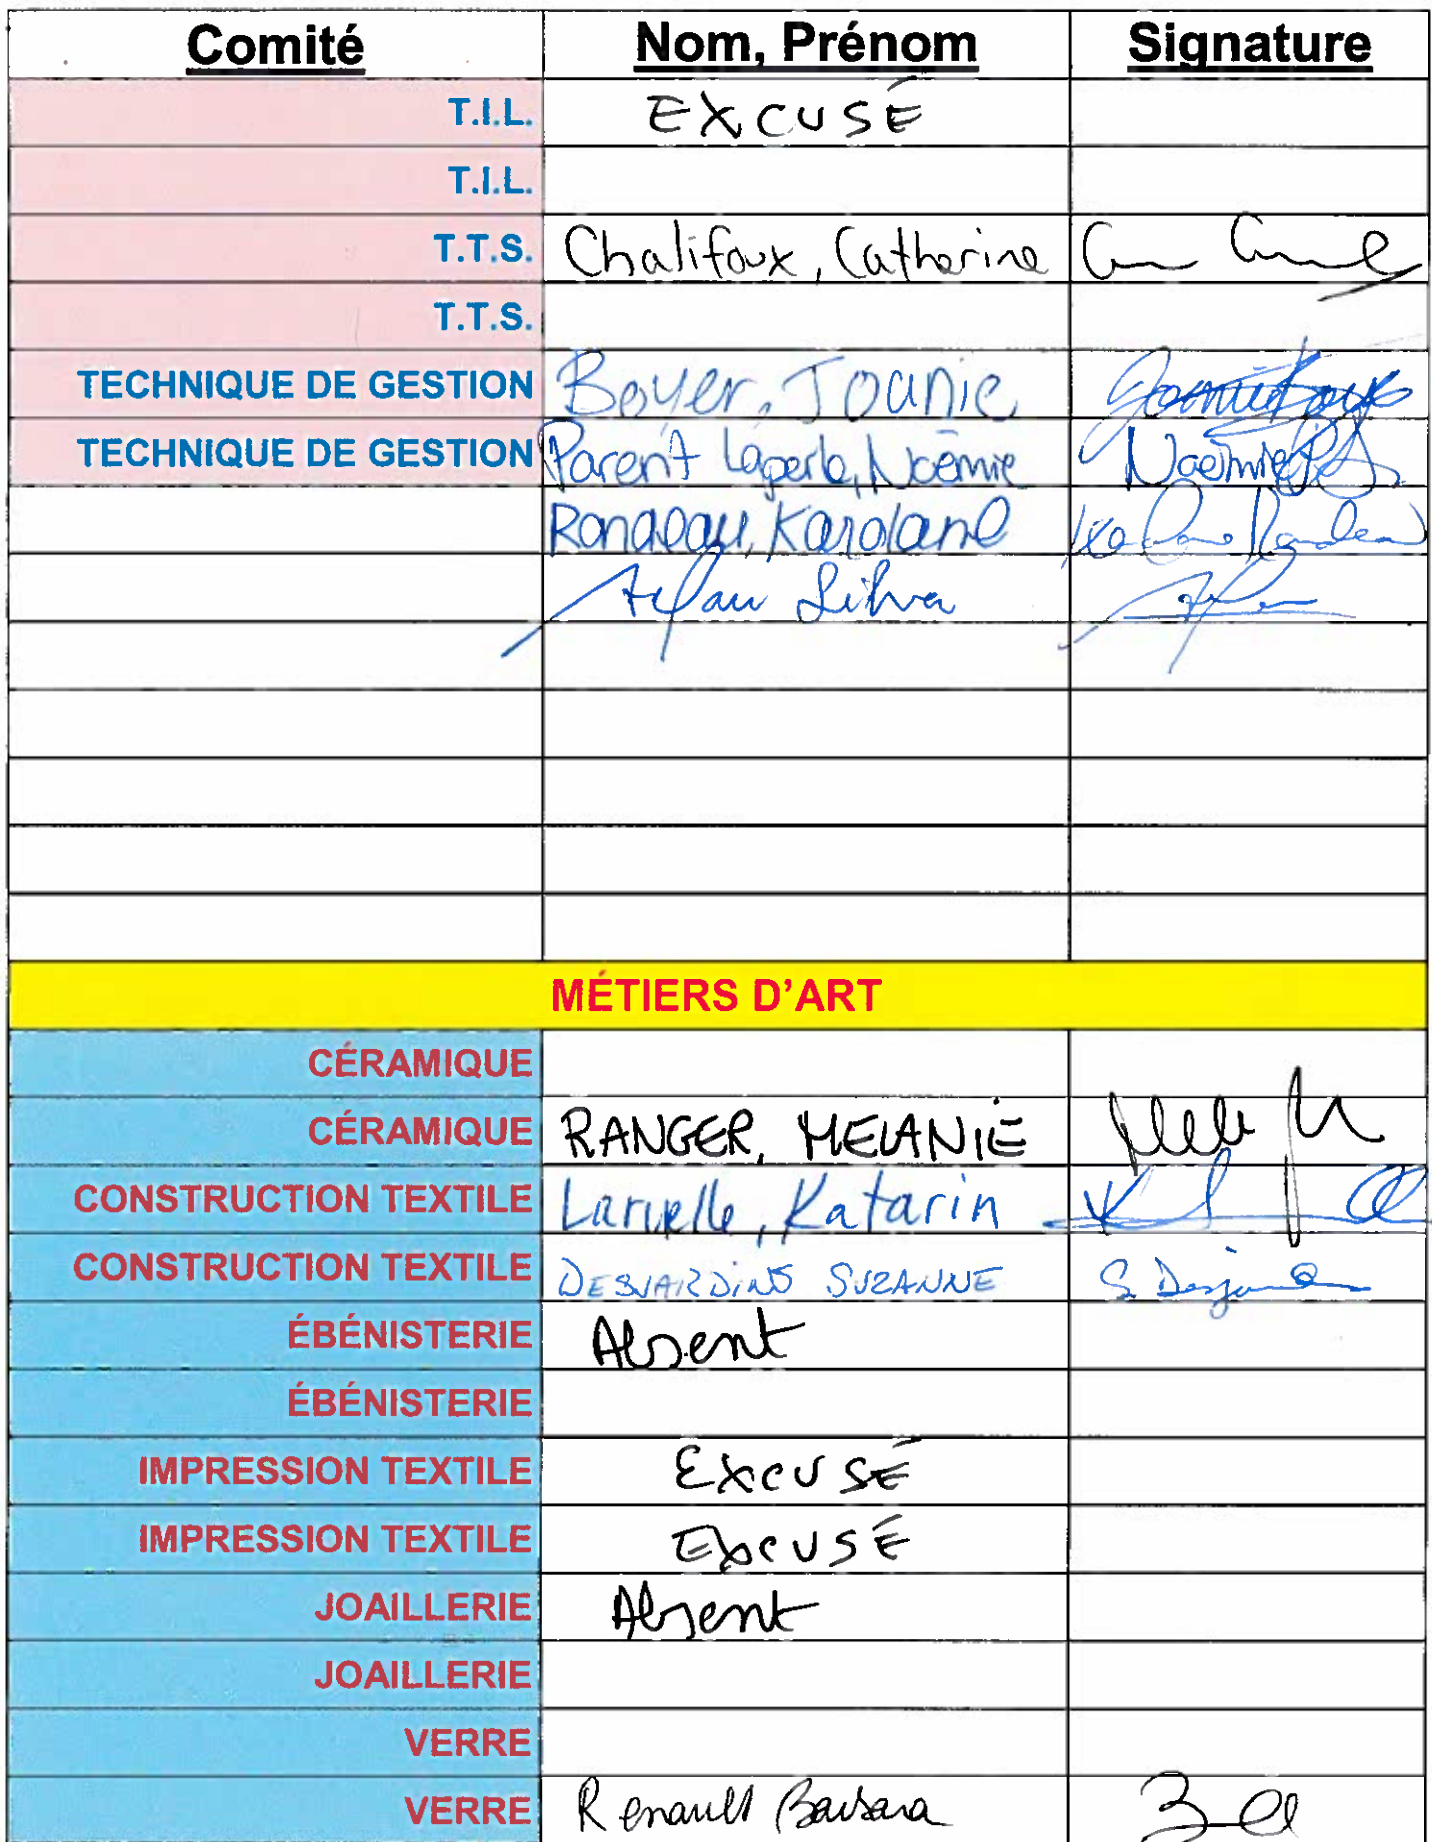 Comité Nom, Prénom Signature
T.I.L. EXCUSÉ
T.I.L.
T.T.S. Chalifoux, Catherine
T.T.S.
TECHNIQUE DE GESTION Boyer, Joanie Joanie Boyer
TECHNIQUE DE GESTION Parent Laperle, Noémie Noémie
Rondeau, Karolane Karolane Rondeau
Silva
MÉTIERS D'ART
CÉRAMIQUE
CÉRAMIQUE RANGER, MELANIE
CONSTRUCTION TEXTILE Larivelle, Katarin
CONSTRUCTION TEXTILE DESJARDINS SUZANNE S. Desjardins
ÉBÉNISTERIE Absent
ÉBÉNISTERIE
IMPRESSION TEXTILE EXCUSÉ
IMPRESSION TEXTILE EXCUSÉ
JOAILLERIE Absent
JOAILLERIE
VERRE
VERRE Renault Barbara